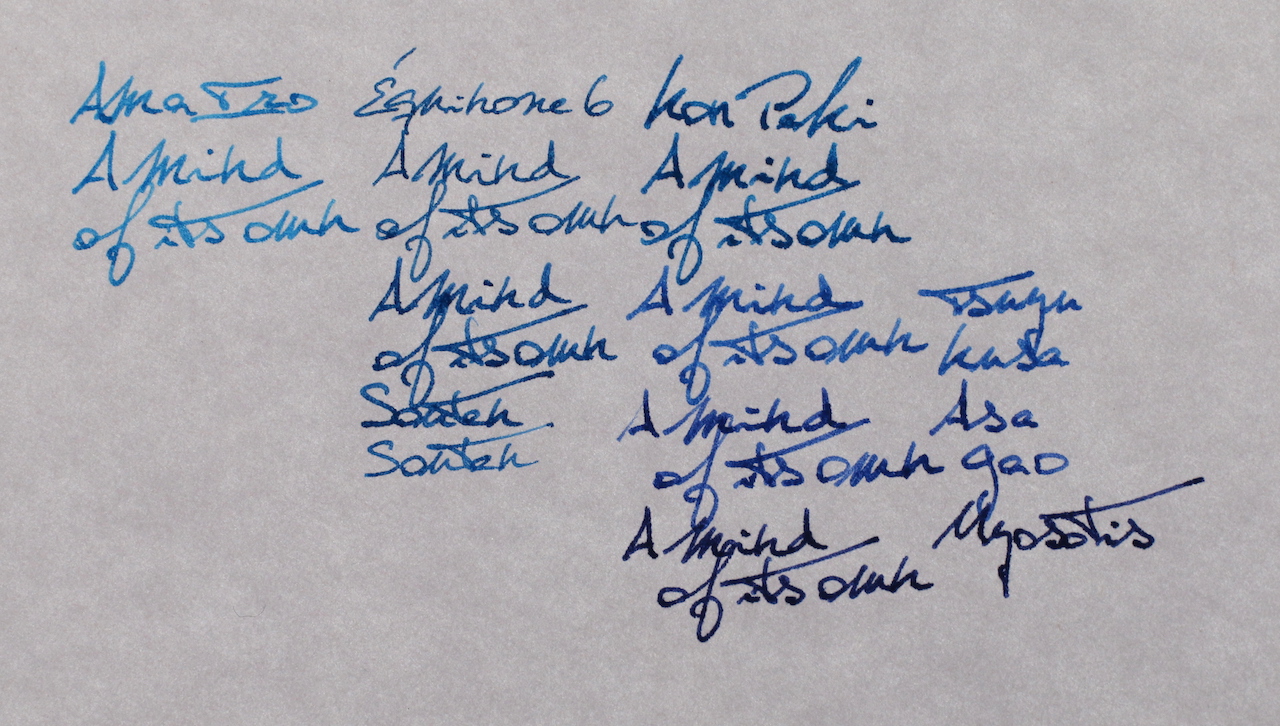 Ama Iro Équinoxe 6 Kon Peki
A Mind A Mind A Mind
of its own of its own of its own
A Mind A Mind Tsuyu
of its own of its own kusa
Souten A Mind Asa
Souten of its own gao
A Mind Myosotis
of its own